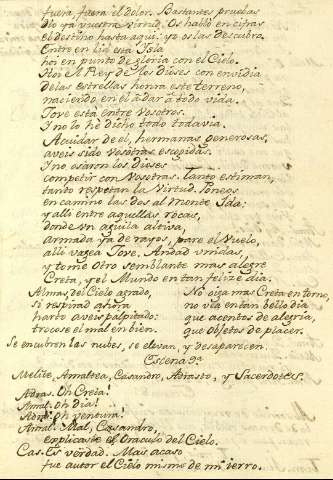 fuera, fuera el dolor. Bastantes pruebas
dio ya vuestra virtud. Os habló en cifras
el destino hasta aqui: yo os las descubro.
Entre en lid esta Isla
hoi en punto de gloria con el Cielo.
Hoi el Rey de los dioses con envidia
de las estrellas honra este terreno,
naciendo en el à dar à todo vida.
Jove està entre vosotros.
I no lo hè dicho todo todavia.
A cuidar de el, hermanas generosas,
aveis sido vosotras escogidas.
I no osaron los dioses
competir con Vosotras. Tanto estiman,
tanto respetan la Virtud. Poneos
en camino las dos al monte Ida:
y alli entre aquellas rocas,
donde un aguila altiva,
armada ya de rayos, pare el Vuelo,
alli vagea Jove. Andad unidas,
y tome otro semblante mas alegre
Creta, y el Mundo en tan feliz dia.
Almas, del Cielo agrado,
si respirad ahora
harto aveis palpitado:
trocose el mal en bien.
No oiga mas Creta en torno,
no vea en tan bello dia
que acentos de alegria,
que objetos de placer.
Se encubren las nubes, se elevan, y desaparecen.
Escena 9ª
Melite, Amaltea, Casandro, Adrasto, y Sacerdotes.
Adras. Oh Creta!
Amal. Oh dia!
Adr. Oh ventura!
Amal. Mal, Casandro,
explicaste el Oraculo del Cielo.
Cas. Es verdad. Mas acaso
fue autor el Cielo mismo de mi ierro.